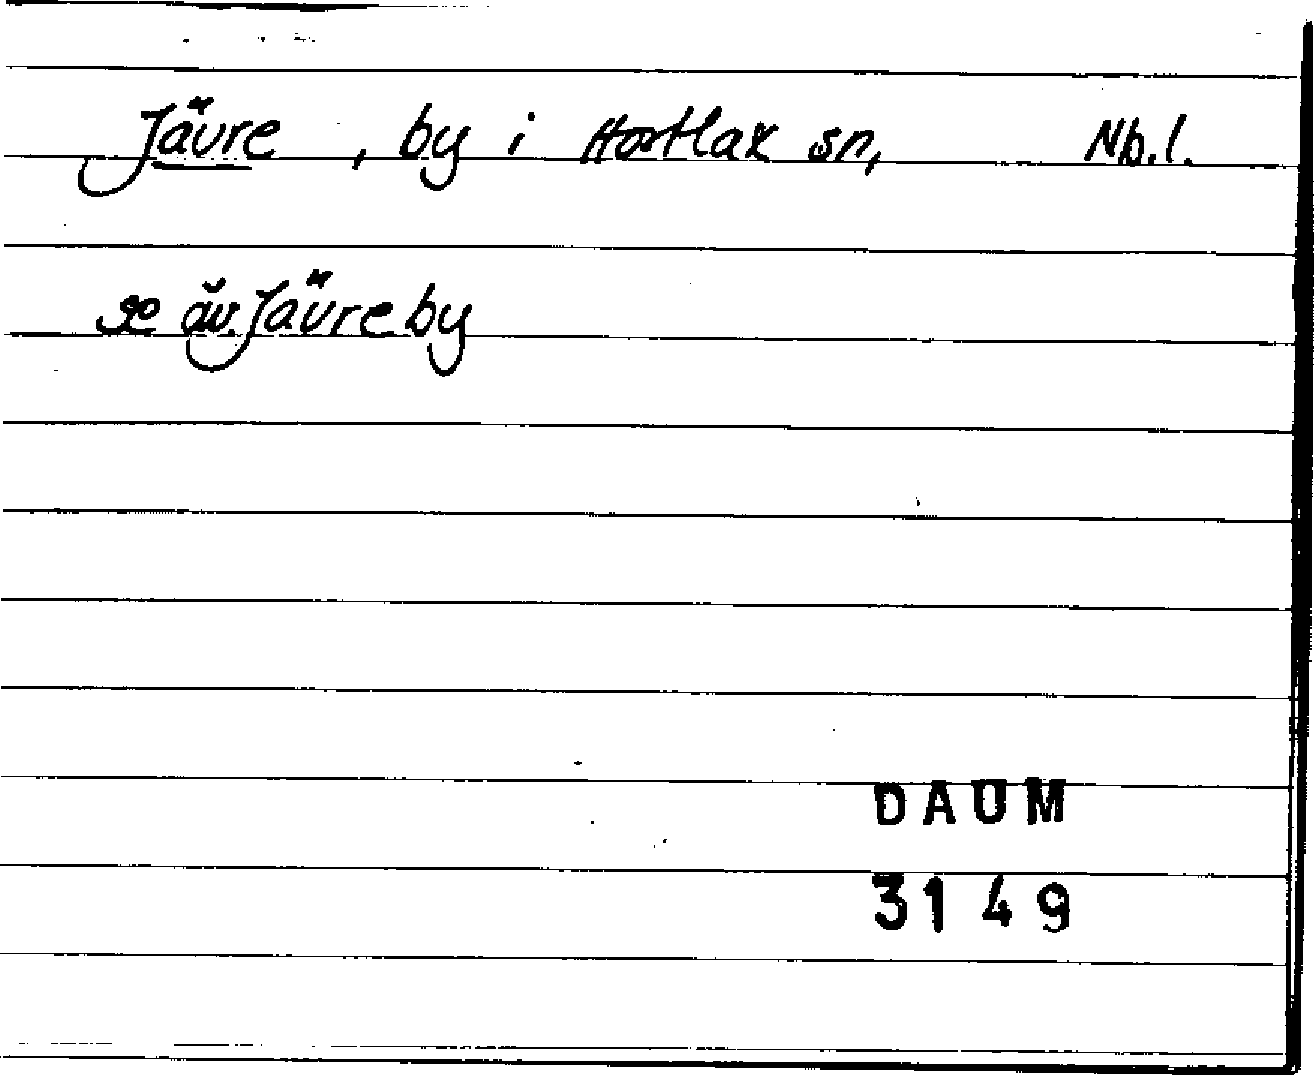 Jävre, by i Hortlax sn, Nb.l.
se äv. Jävreby
DAUM
3149